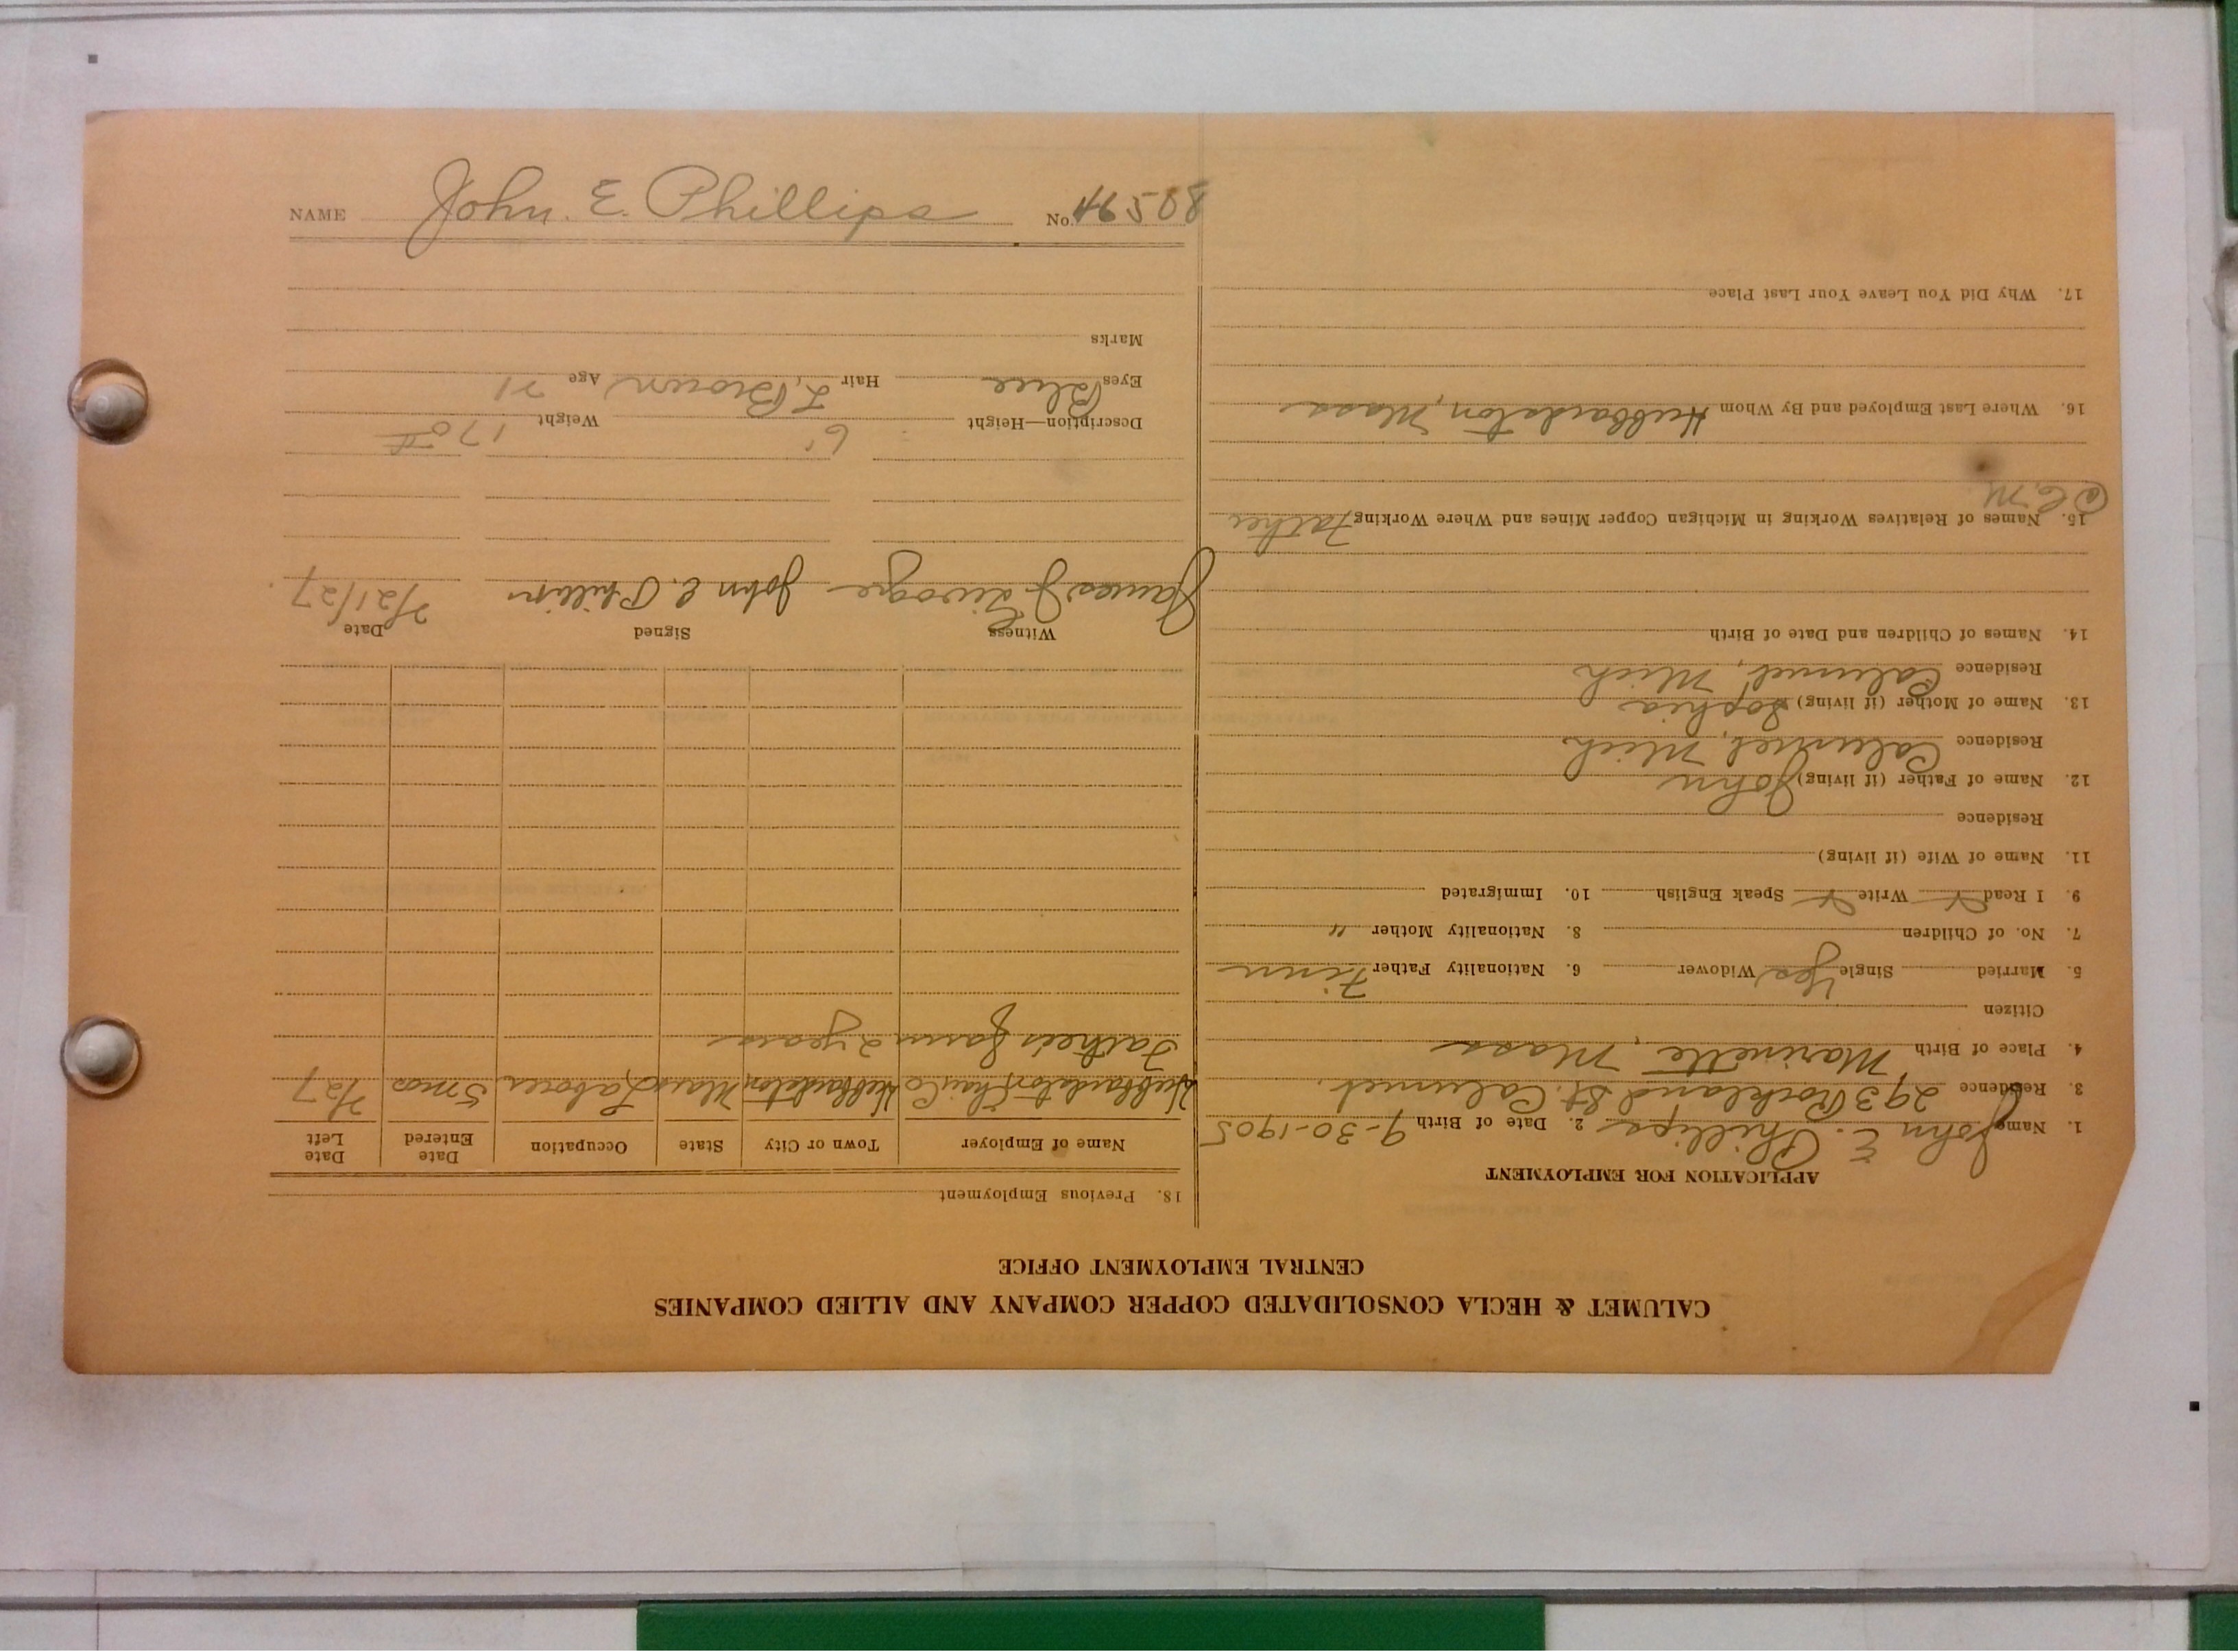 NAME John. E. Phillips No. 46508
CALUMET & HECLA CONSOLIDATED COPPER COMPANY AND ALLIED COMPANIES
CENTRAL EMPLOYMENT OFFICE
APPLICATION FOR EMPLOYMENT
1. Name John E. Phillips 2. Date of Birth 9-30-1905
3. Residence 293 Rockland St. Calumet.
4. Place of Birth Marinette, Mass
Citizen
5. Married Single Yes Widower 6. Nationality Father Finn
7. No. of Children 8. Nationality Mother "
9. I Read Write Speak English 10. Immigrated
11. Name of Wife (if living)
Residence
12. Name of Father (if living) John
Residence Calumet, Mich
13. Name of Mother (if living) Sophia
Residence Calumet, Mich
14. Names of Children and Date of Birth
15. Names of Relatives Working in Michigan Copper Mines and Where Working Father
@ C.M.
16. Where Last Employed and By Whom Hubbardston, Mass
17. Why Did You Leave Your Last Place
18. Previous Employment
Name of Employer Town or City State Occupation Date Entered Date Left
Hubbardston Chair Co Hubbardston Mass Laborer 5 mos 7/27
Father's farm 2 years
Witness Signed Date
James J John E. Phillips 7/21/27
Description—Height 6' Weight 170#
Eyes Blue Hair L. Brown Age 21
Marks